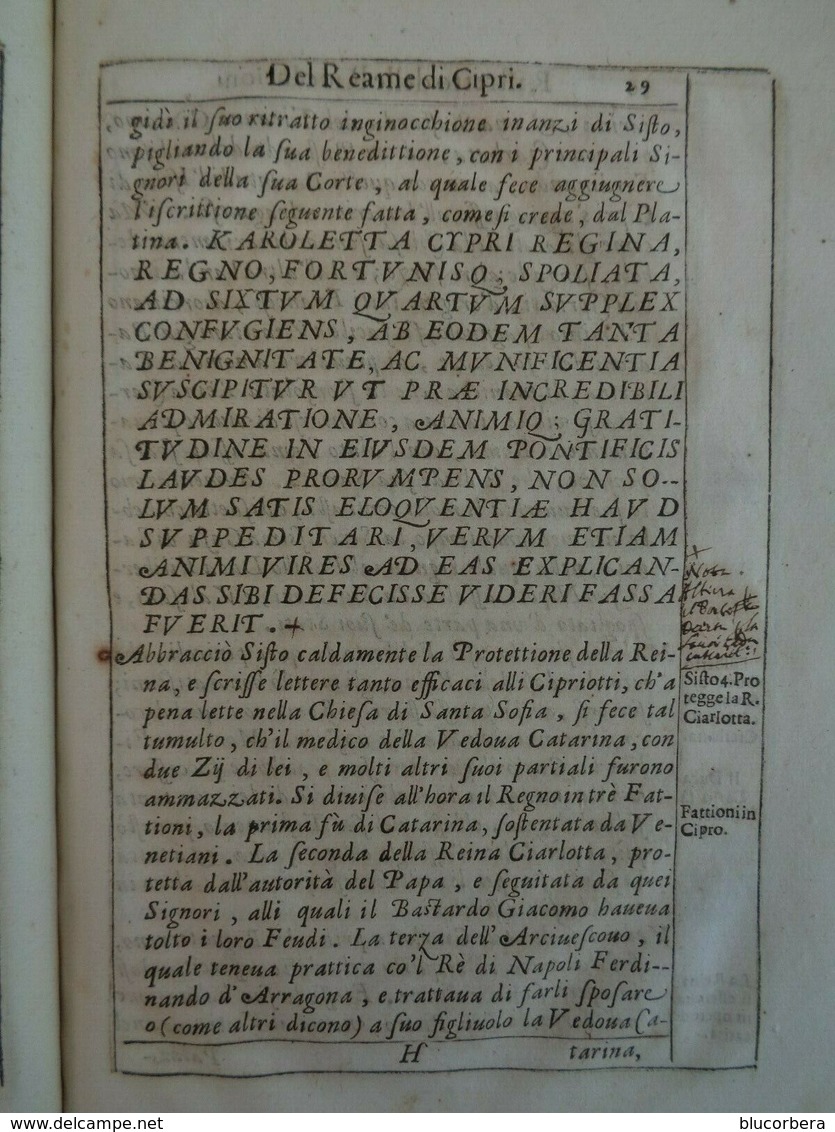 Del Reame di Cipri. 29
gidì il ſuo ritratto inginocchione inanzi di Siſto,
pigliando la ſua benedittione, con i principali Si-
gnori della ſua Corte, al quale fece aggiugnere
l'iſcrittione ſeguente fatta, come ſi crede, dal Pla-
tina. KAROLETTA CYPRI REGINA,
REGNO, FORTVNISQ; SPOLIATA,
AD SIXTVM QVARTVM SVPPLEX
CONFVGIENS, AB EODEM TANTA
BENIGNITATE, AC MVNIFICENTIA
SVSCIPITVR VT PRÆ INCREDIBILI
ADMIRATIONE, ANIMIQ; GRATI-
TVDINE IN EIVSDEM PONTIFICIS
LAVDES PRORVMPENS, NON SO--
LVM SATIS ELOQVENTIÆ HAVD
SVPPEDITARI, VERVM ETIAM
ANIMI VIRES AD EAS EXPLICAN-
DAS SIBI DEFECISSE VIDERI FASSA
FVERIT. +
Abbracciò Siſto caldamente la Protettione della Rei-
na, e ſcriſſe lettere tanto efficaci alli Cipriotti, ch'a
pena lette nella Chieſa di Santa Sofia, ſi fece tal
tumulto, ch'il medico della Vedoua Catarina, con
due Zij di lei, e molti altri ſuoi partiali furono
ammazzati. Si diuiſe all'hora il Regno in trè Fat-
tioni, la prima fù di Catarina, ſoſtentata da Ve-
netiani. La ſeconda della Reina Ciarlotta, pro-
tetta dall'autorità del Papa, e ſeguitata da quei
Signori, alli quali il Baſtardo Giacomo haueua
tolto i loro Feudi. La terza dell'Arciueſcouo, il
quale teneua prattica co'l Rè di Napoli Ferdi--
nando d'Arragona, e trattaua di farli ſpoſare
o (come altri dicono) a ſuo figliuolo la Vedoua Ca-
H tarina,
+
Siſto 4. Pro
tegge la R.
Ciarlotta.
Fattioni in
Cipro.
www.delcampe.net
blucorbera